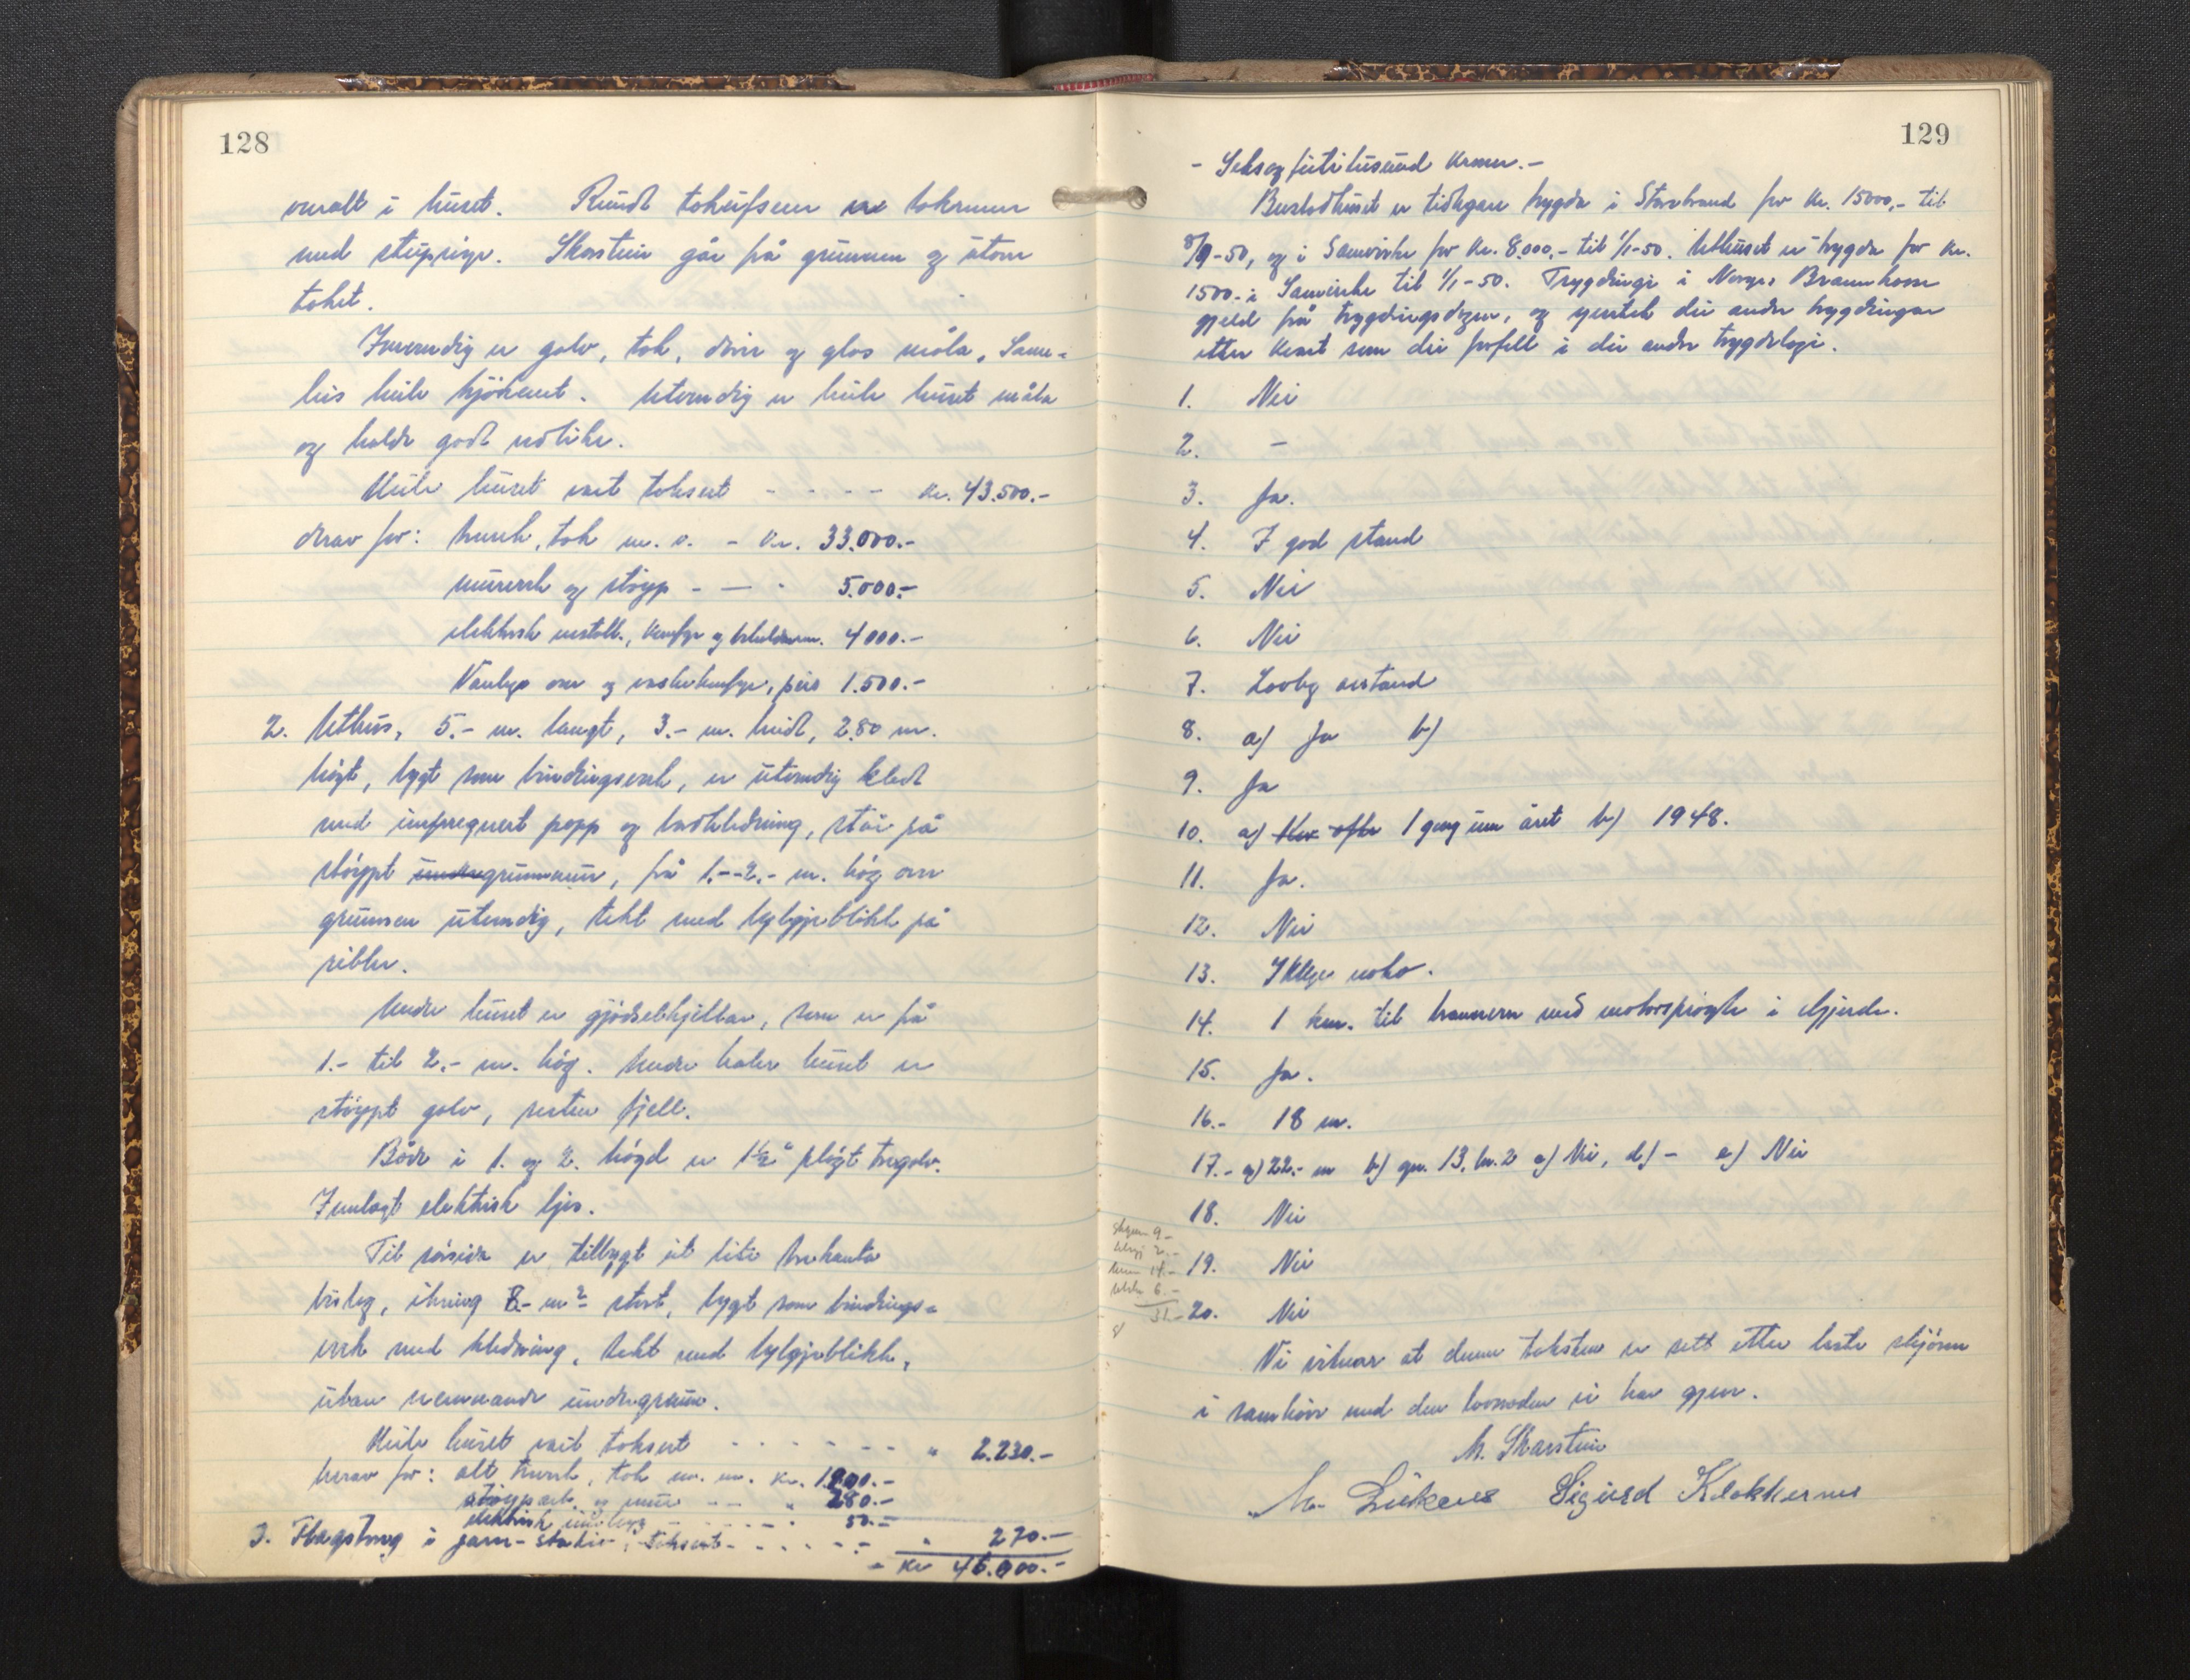 128
overalt i huset. Rundt tokufsene er tokrenner
med stuprøyr. Skorstein går frå grunnen og utom
taket.
Innvendig er golv, tak, dører og glas måla. Same=
leis heile kjøkenet. Utvendig er heile huset måla
og halde godt vedlike.
Heile huset vart taksert - - - - kr. 43.500.-
derav for: treverk, tak m. v. - kr. 33.000.-
murverk og støyp - — - 5.000.-
elektrisk install., komfyr og 4000.-
Vanlege omn og vaskekomfyr, peis 1.500.-
2. Uthus, 5.- m. langt, 3.- m. breidt, 2.80 m.
høgt, bygt som bindingsverk, er utvendig kledt
med impregnert papp og bordkledning, står på
støypt grunnmur, frå 1.--2.- m. høg over
grunnen utvendig, tekt med bylgjeblikk på
ribber.
Under huset er gjødselkjellar, som er frå
1.- til 2.- m. høg. Under halve huset er
støypt golv, resten fjell.
Både i 1. og 2. høgd er 1½" pløgt tregolv.
Innlagt elektrisk ljos.
Til sørsida er tilbygt eit lite trekanta
bislag, ikring 8.- m² stort, bygt som bindings=
verk med kledning, tekt med bylgjeblikk,
utan nemnande undergrunn.
Heile huset vart taksert - - - - - - " 2.230.-
herav for: alt treverk, tak m. m. kr. 1900.-
støyparb. og mur - - " 280.-
elektrisk innlegg - - - - - 50.-
3. Flagstong i jarn-stativ, taksert - - - - - - " 270.-
- Kr 46.000.-
129
- Seksogførtitusund kroner. -
Bustadhuset er tidlegare trygda i Storebrand for kr. 15000,- til
8/9-50, og i Samvirke for kr. 8.000,- til 1/1-50. Uthuset er trygda for kr.
1500.- i Samvirke til 1/1-50. Trygdinga i Noregs Brannkasse
gjeld frå trygdingsdagen, og den andre trygdingar
etter kvart som dei forfell i dei andre trygdelaga.
1. Nei
2. -
3. Ja.
4. I god stand
5. Nei
6. Nei
7. Lovleg avstand
8. a) Ja b)
9. Ja
10. a) Kor ofte 1 gong um året b) 1948.
11. Ja.
12. Nei
13. Ikkje noko.
14. 1 km. til brannvern med motorsprøyte i
15. Ja.
16.- 18 m.
17.- a) 22.- m b) gnr. 13, br. 2 c) Nei, d) - e) Nei
18. Nei
19. Nei
20. Nei
Vi vitnar at denne taksten er sett etter beste skjønn
i samhøve med den lovnaden vi har gjeve.
M. Skarstein
Sigurd Klokkernes